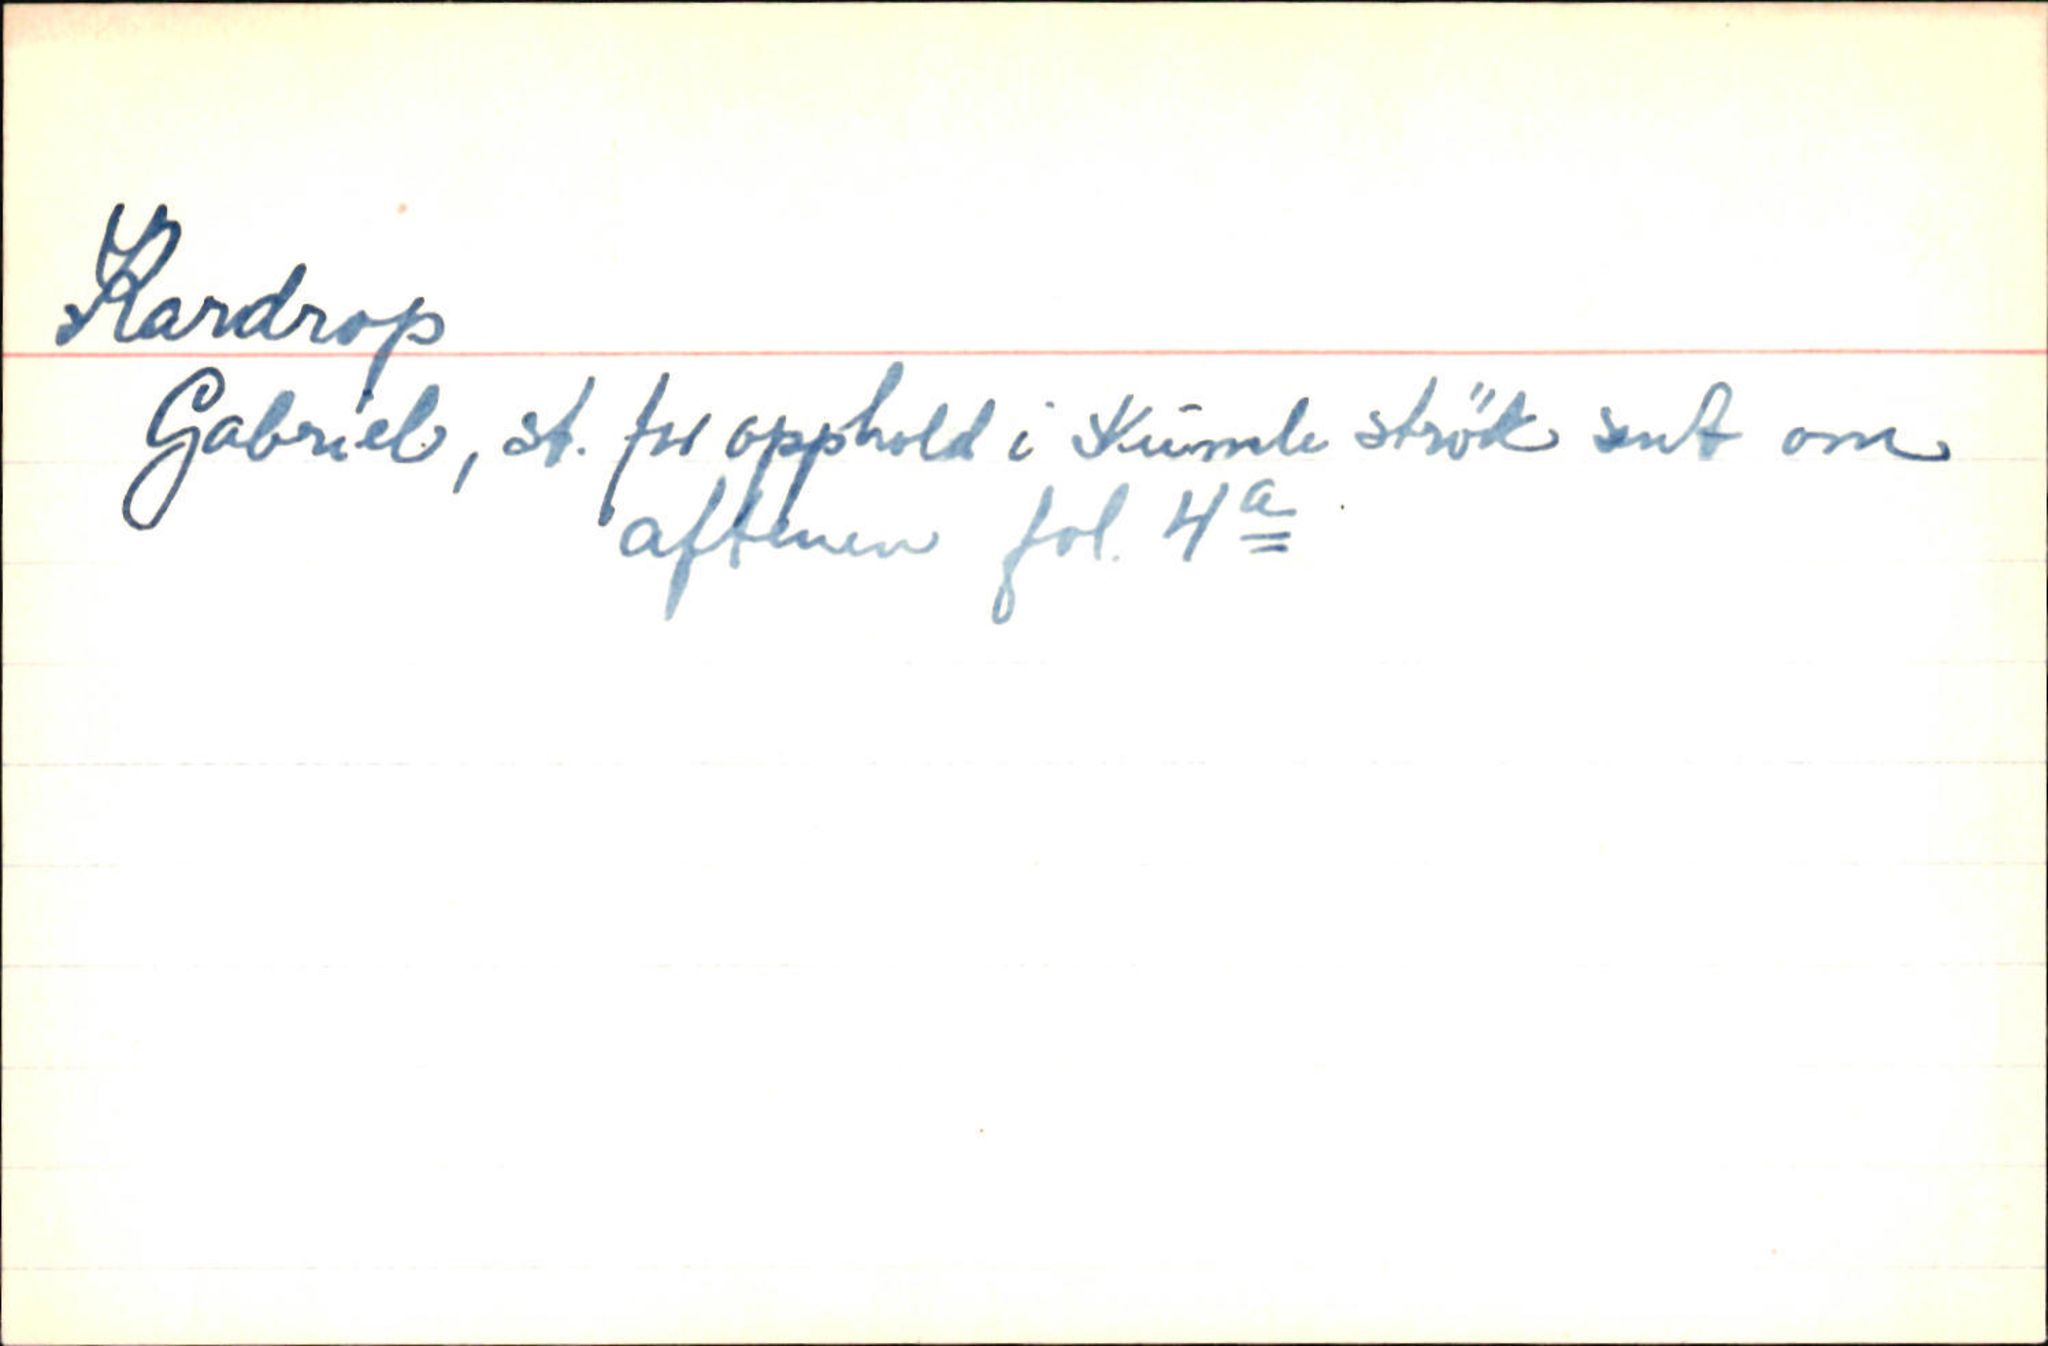 Kardrop
Gabriel, st. for opphold i skumle strök sent om
aftenen fol. 4a